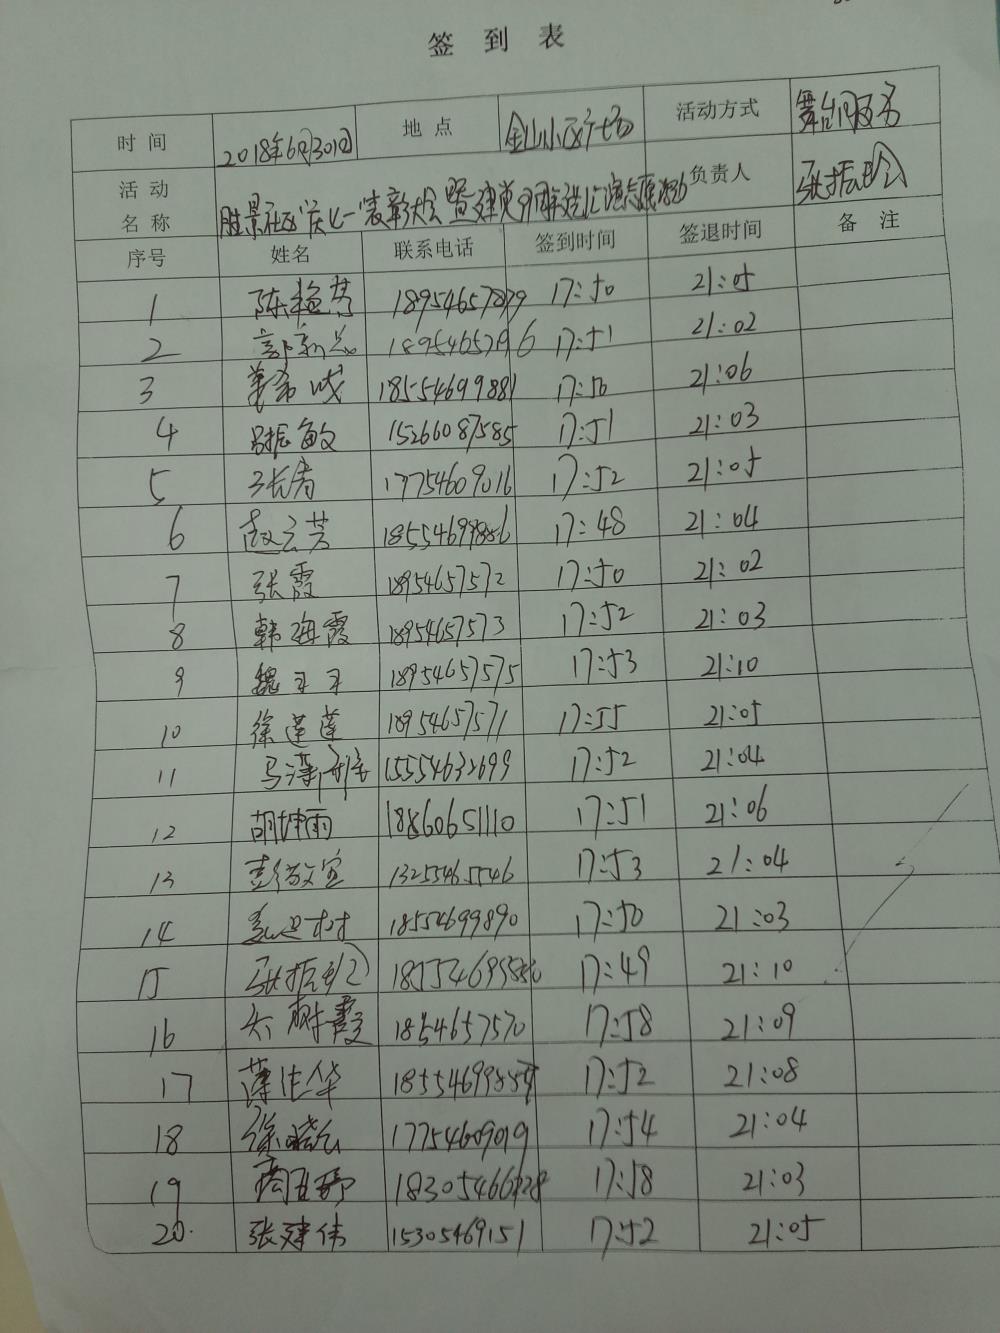 签到表
时间 2018年6月30日 地点 金山小区广场 活动方式 舞台服务
活动名称 胜景社区"庆七一"表彰大会暨建党97周年文艺汇演志愿活动 负责人
序号 姓名 联系电话 签到时间 签退时间 备注
1 陈艳芬 18954657879 17:50 21:05
2 17:51 21:02
3 18554699881 17:50 21:06
4 吕振敏 15266087585 17:51 21:03
5 17754609016 17:52 21:05
6 赵云芳 18554699886 17:48 21:04
7 张霞 18954657572 17:50 21:02
8 韩海霞 18954657573 17:52 21:03
9 魏 18954657575 17:53 21:10
10 徐莲莲 18954657571 17:55 21:05
11 15554632699 17:52 21:04
12 胡坤雨 18860651110 17:51 21:06
13 13255465546 17:53 21:04
14 18554699890 17:50 21:03
15 17:49 21:10
16 1854657570 17:58 21:09
17 17:52 21:08
18 徐晓云 17754609019 17:54 21:04
19 17:58 21:03
20. 张建伟 15305469151 17:52 21:05